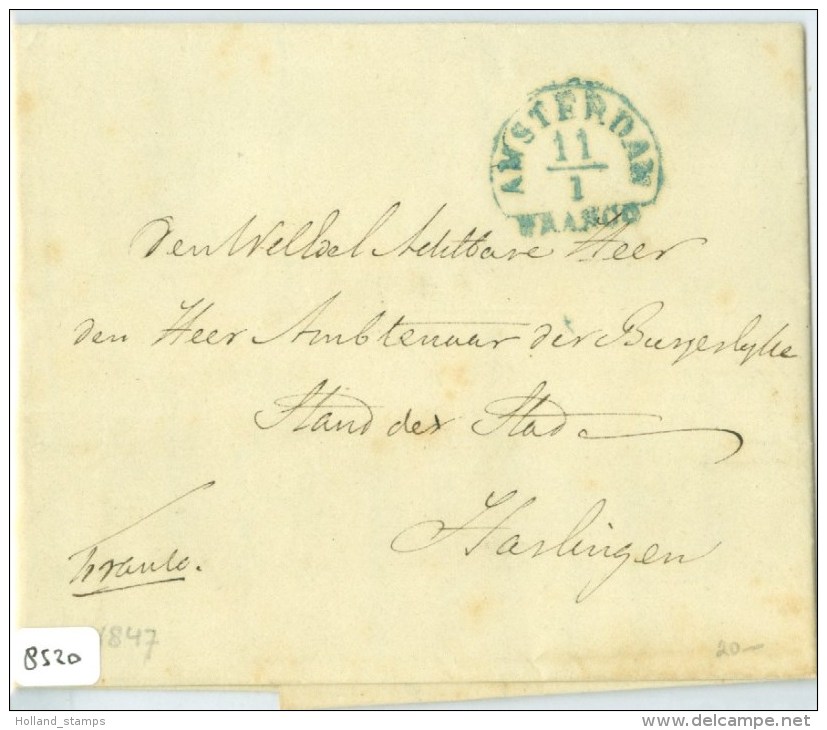 AMSTERDAM
11
1
FRANCO
Den WelEdel Achtbare Heer
den Heer Ambtenaar der Burgerlyke
Stand der Stad
Harlingen
franco.
1847
8520
20-
Holland_stamps
www.delcampe.net